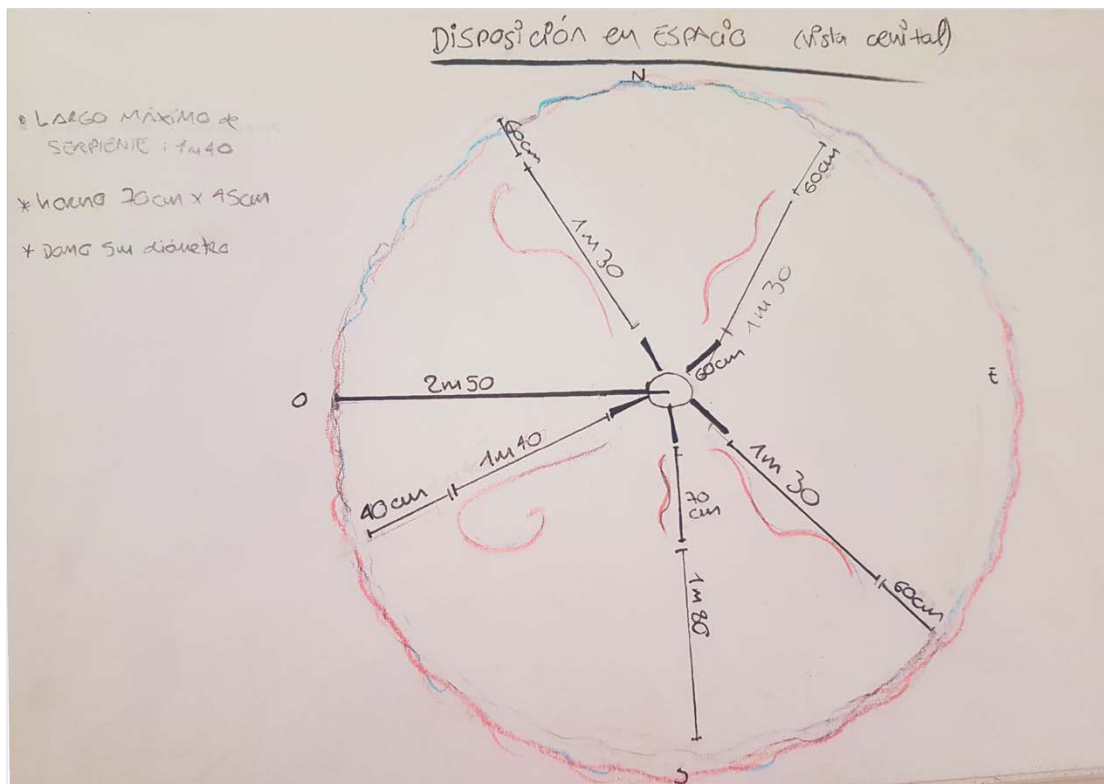 DISPOSICIÓN EN ESPACIO (vista cenital)
N
• LARGO MÁXIMO de
SERPIENTE : 1m40
* horno 70cm x 45cm
* DOMO 5m diámetro
60cm
60cm
1m30
1m30
60cm
E
O
2m50
1m40
40cm
70
cm
1m30
1m80
60cm
S